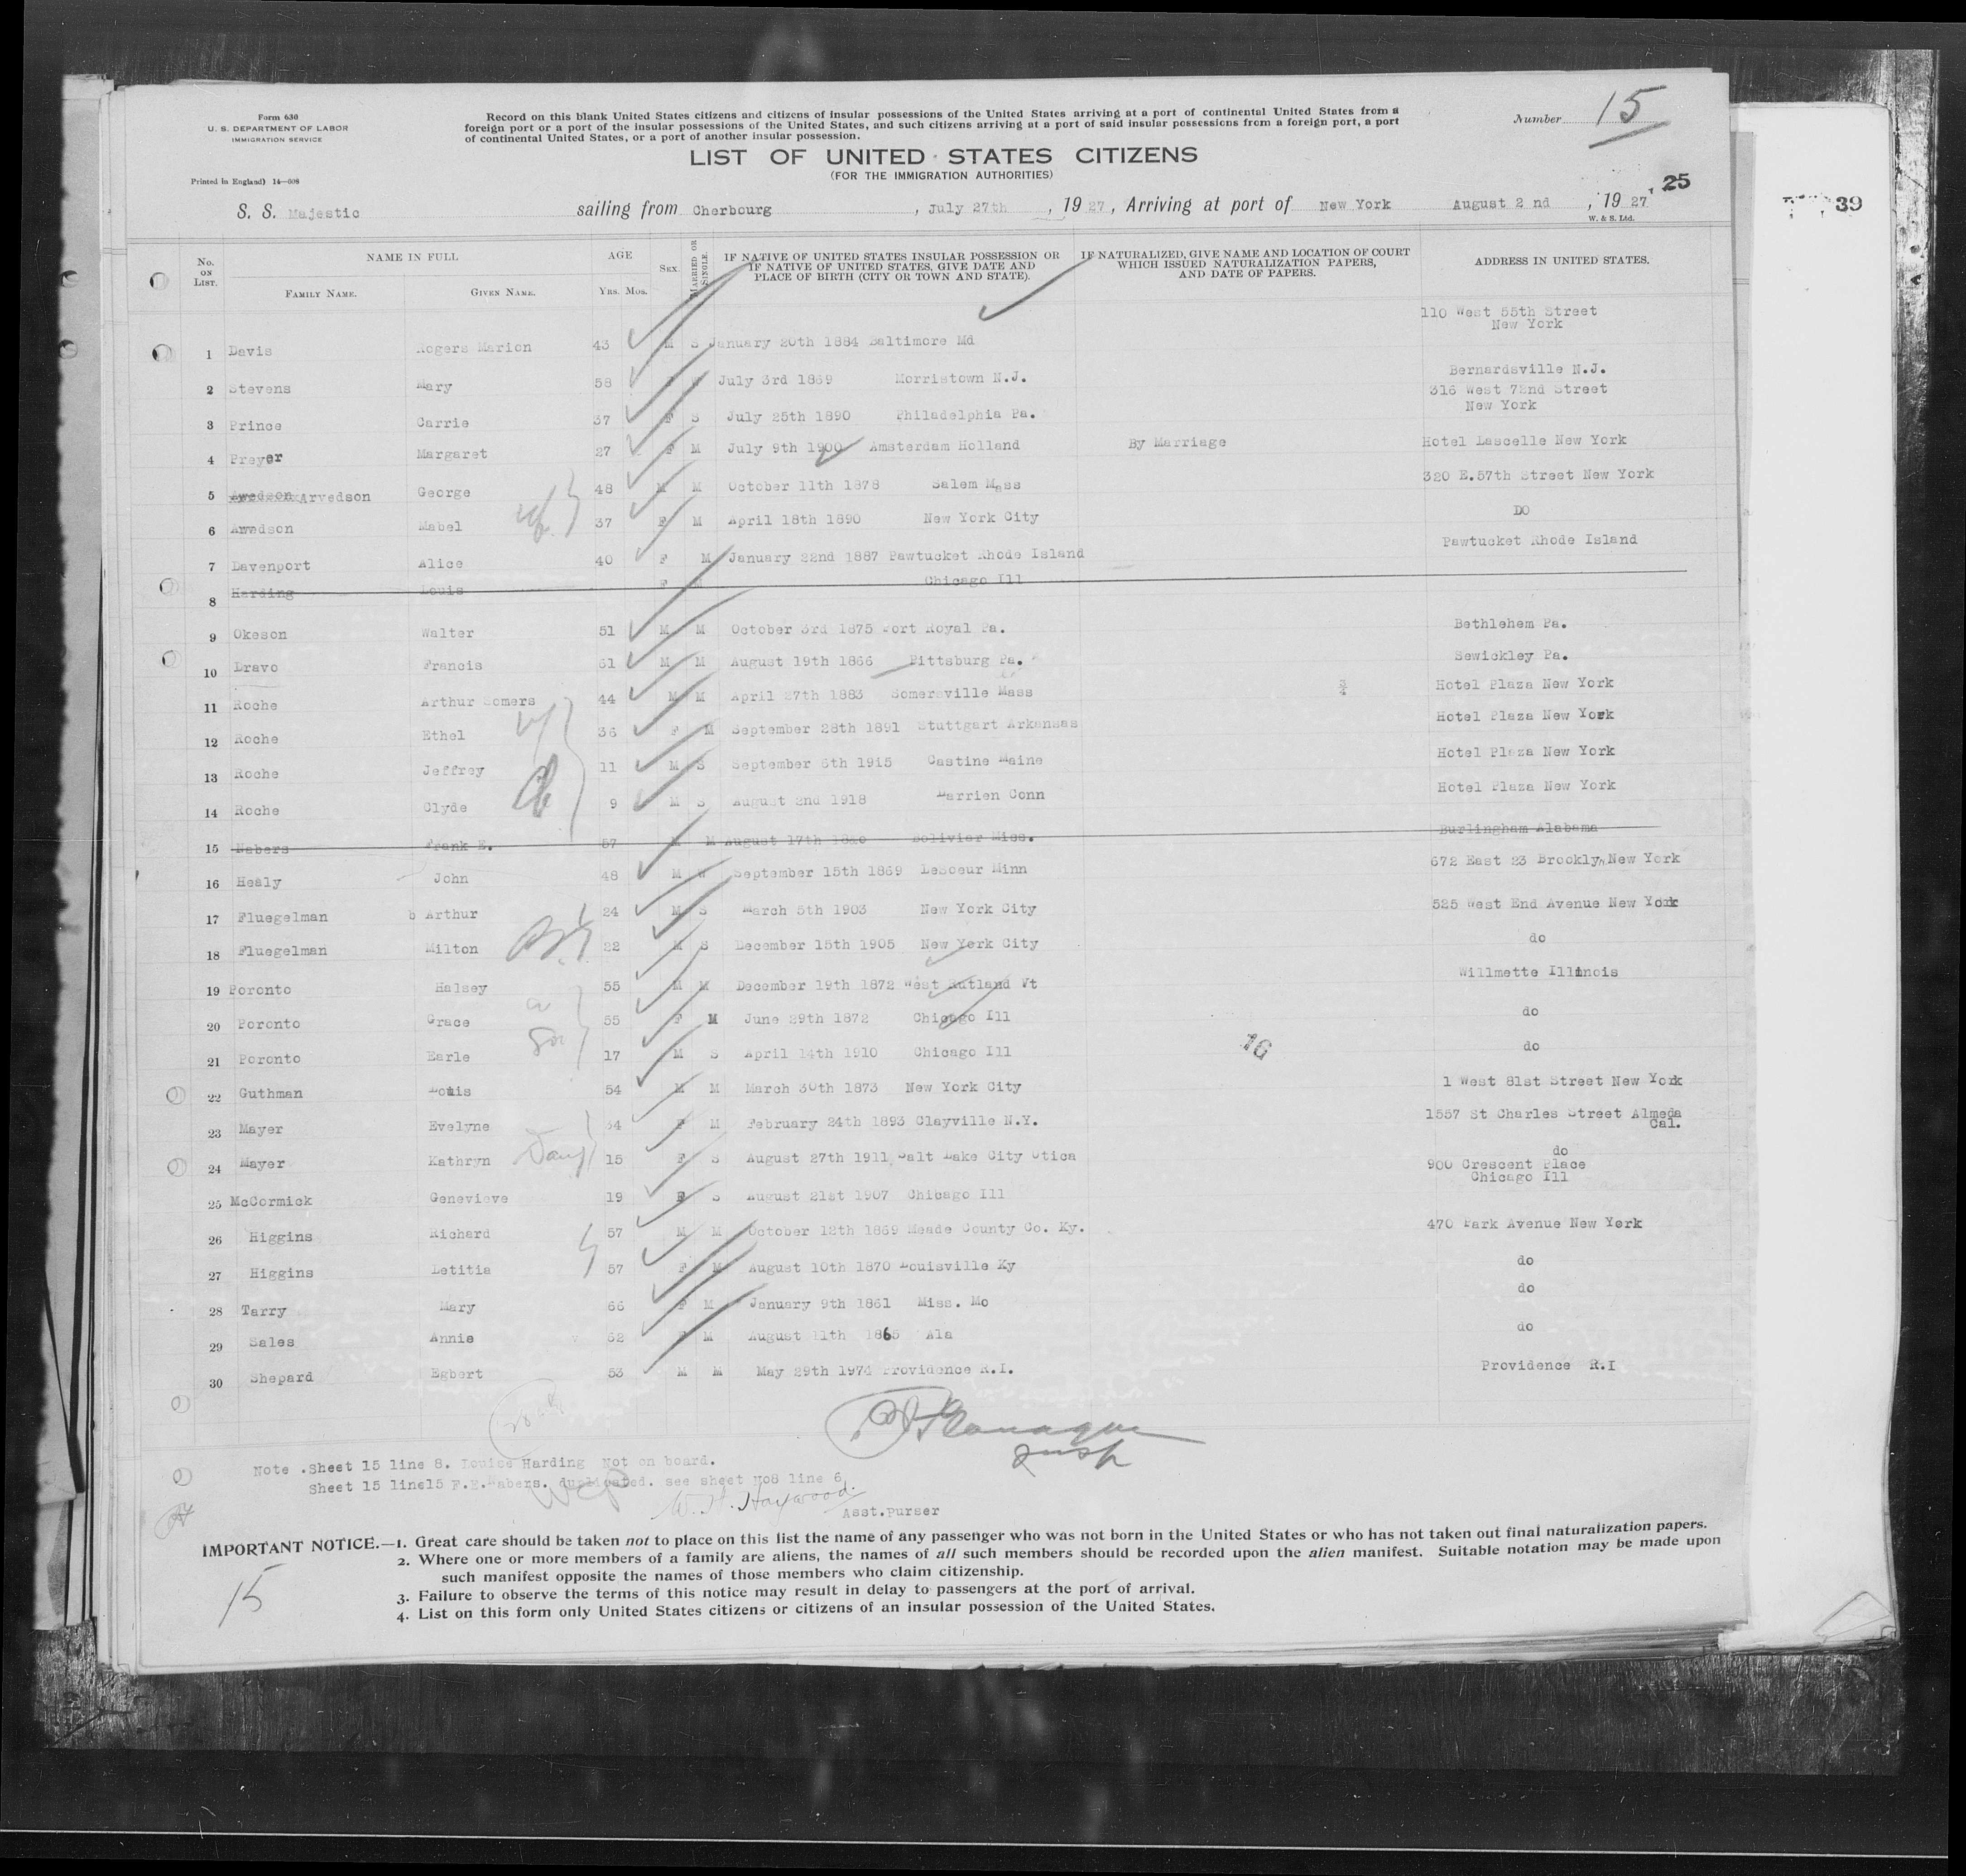 Form 630
U. S. DEPARTMENT OF LABOR
IMMIGRATION SERVICE
Printed in England) 14—608
Record on this blank United States citizens and citizens of insular possessions of the United States arriving at a port of continental United States from a
foreign port or a port of the insular possessions of the United States, and such citizens arriving at a port of said insular possessions from a foreign port, a port
of continental United States, or a port of another insular possession.
Number 15
LIST OF UNITED STATES CITIZENS
(FOR THE IMMIGRATION AUTHORITIES)
25
39
S. S. Majestic sailing from Cherbourg , July 27th , 19 27 , Arriving at port of New York August 2 nd , 19 27
W. & S. Ltd.
No. ON LIST. NAME IN FULL FAMILY NAME. GIVEN NAME. AGE YRS. MOS. SEX. MARRIED OR SINGLE. IF NATIVE OF UNITED STATES INSULAR POSSESSION OR IF NATIVE OF UNITED STATES, GIVE DATE AND PLACE OF BIRTH (CITY OR TOWN AND STATE). IF NATURALIZED, GIVE NAME AND LOCATION OF COURT WHICH ISSUED NATURALIZATION PAPERS, AND DATE OF PAPERS. ADDRESS IN UNITED STATES.
1 Davis Rogers Marion 43 M S January 20th 1884 Baltimore Md 110 West 55th Street New York
2 Stevens Mary 58 F July 3rd 1869 Morristown N.J. Bernardsville N.J.
3 Prince Carrie 37 F S July 25th 1890 Philadelphia Pa. 316 West 72nd Street New York
4 Preyer Margaret 27 F M July 9th 1900 Amsterdam Holland By Marriage Hotel Lascelle New York
5 Awedson Arvedson George 48 M M October 11th 1878 Salem Mass 320 E.57th Street New York
6 Awedson Mabel 37 F M April 18th 1890 New York City DO
7 Davenport Alice 40 F M January 22nd 1887 Pawtucket Rhode Island Pawtucket Rhode Island
8 Harding Louis F M Chicago Ill
9 Okeson Walter 51 M M October 3rd 1875 Port Royal Pa. Bethlehem Pa.
10 Dravo Francis 61 M M August 19th 1866 Pittsburg Pa. Sewickley Pa.
11 Roche Arthur Somers 44 M M April 27th 1883 Somersville Mass Hotel Plaza New York
12 Roche Ethel 36 F M September 28th 1891 Stuttgart Arkansas Hotel Plaza New York
13 Roche Jeffrey 11 M S September 6th 1915 Castine Maine Hotel Plaza New York
14 Roche Clyde 9 M S August 2nd 1918 Darrien Conn Hotel Plaza New York
15 Nabers Frank E. 57 M M August 17th Boliviar Miss. Burlingham Alabama
16 Healy John 48 M W September 15th 1869 LeSoeur Minn 672 East 23 Brooklyn New York
17 Fluegelman b Arthur 24 M S March 5th 1903 New York City 525 West End Avenue New York
18 Fluegelman Milton 22 M S December 15th 1905 New York City do
19 Poronto Halsey 55 M M December 19th 1872 West Rutland Vt Willmette Illinois
20 Poronto Grace 55 F M June 29th 1872 Chicago Ill do
21 Poronto Earle 17 M S April 14th 1910 Chicago Ill do
16
22 Guthman Louis 54 M M March 30th 1873 New York City 1 West 81st Street New York
23 Mayer Evelyne 34 F M February 24th 1893 Clayville N.Y. 1557 St Charles Street Almeda Cal.
24 Mayer Kathryn Daug 15 F S August 27th 1911 Salt Lake City Utica do
25 McCormick Genevieve 19 F S August 21st 1907 Chicago Ill 900 Crescent Place Chicago Ill
26 Higgins Richard 57 M M October 12th 1869 Meade County Co. Ky. 470 Park Avenue New York
27 Higgins Letitia 57 F M August 10th 1870 Louisville Ky do
28 Tarry Mary 66 F M January 9th 1861 Miss. Mo do
29 Sales Annie 62 F M August 11th 1865 Ala do
30 Shepard Egbert 53 M M May 29th 1974 Providence R.I. Providence R.I
Flanagan
Insp
Note .Sheet 15 line 8. Louise Harding Not on board.
Sheet 15 line15 F.E.Nabers. duplicated. see sheet No8 line 6.
W. H. Haywood.
Asst.Purser
IMPORTANT NOTICE.—1. Great care should be taken not to place on this list the name of any passenger who was not born in the United States or who has not taken out final naturalization papers.
2. Where one or more members of a family are aliens, the names of all such members should be recorded upon the alien manifest. Suitable notation may be made upon
such manifest opposite the names of those members who claim citizenship.
3. Failure to observe the terms of this notice may result in delay to passengers at the port of arrival.
4. List on this form only United States citizens or citizens of an insular possession of the United States.
15